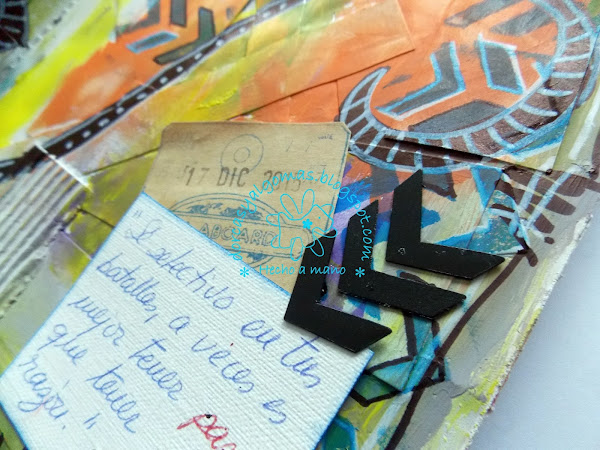 17 DIC 2015
ABOARD
algomas.blogspot.com
* Hecho a mano *
"Selectivo en tus
batallas, a veces es
mejor tener
que tener
razón."